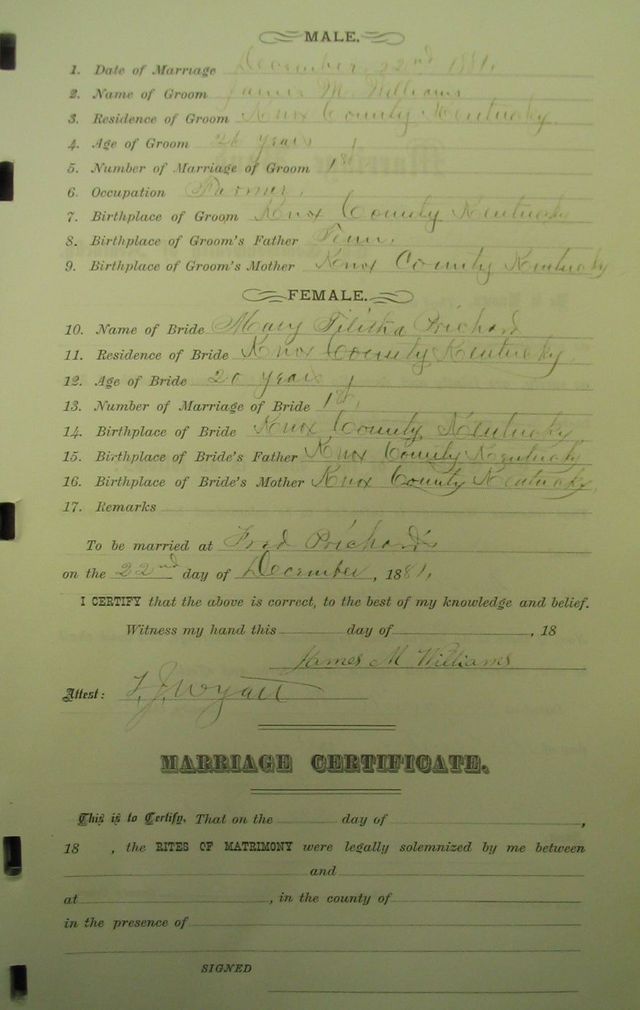 MALE.
1. Date of Marriage December 22nd 1881.
2. Name of Groom James M. Williams
3. Residence of Groom Knox County Kentucky.
4. Age of Groom 26 years
5. Number of Marriage of Groom 1st
6. Occupation Farmer.
7. Birthplace of Groom Knox County Kentucky
8. Birthplace of Groom's Father Tenn.
9. Birthplace of Groom's Mother Knox County Kentucky
FEMALE.
10. Name of Bride Mary Filitha Prichard
11. Residence of Bride Knox County, Kentucky.
12. Age of Bride 20 years
13. Number of Marriage of Bride 1st.
14. Birthplace of Bride Knox County, Kentucky
15. Birthplace of Bride's Father Knox County Kentucky
16. Birthplace of Bride's Mother Knox County Kentucky.
17. Remarks
To be married at Fred Prichard's
on the 22nd day of December, 1881.
I CERTIFY that the above is correct, to the best of my knowledge and belief.
Witness my hand this day of , 18
James M Williams
Attest: Wyatt
MARRIAGE CERTIFICATE.
This is to Certify, That on the day of ,
18 , the RITES OF MATRIMONY were legally solemnized by me between
and
at , in the county of
in the presence of
SIGNED